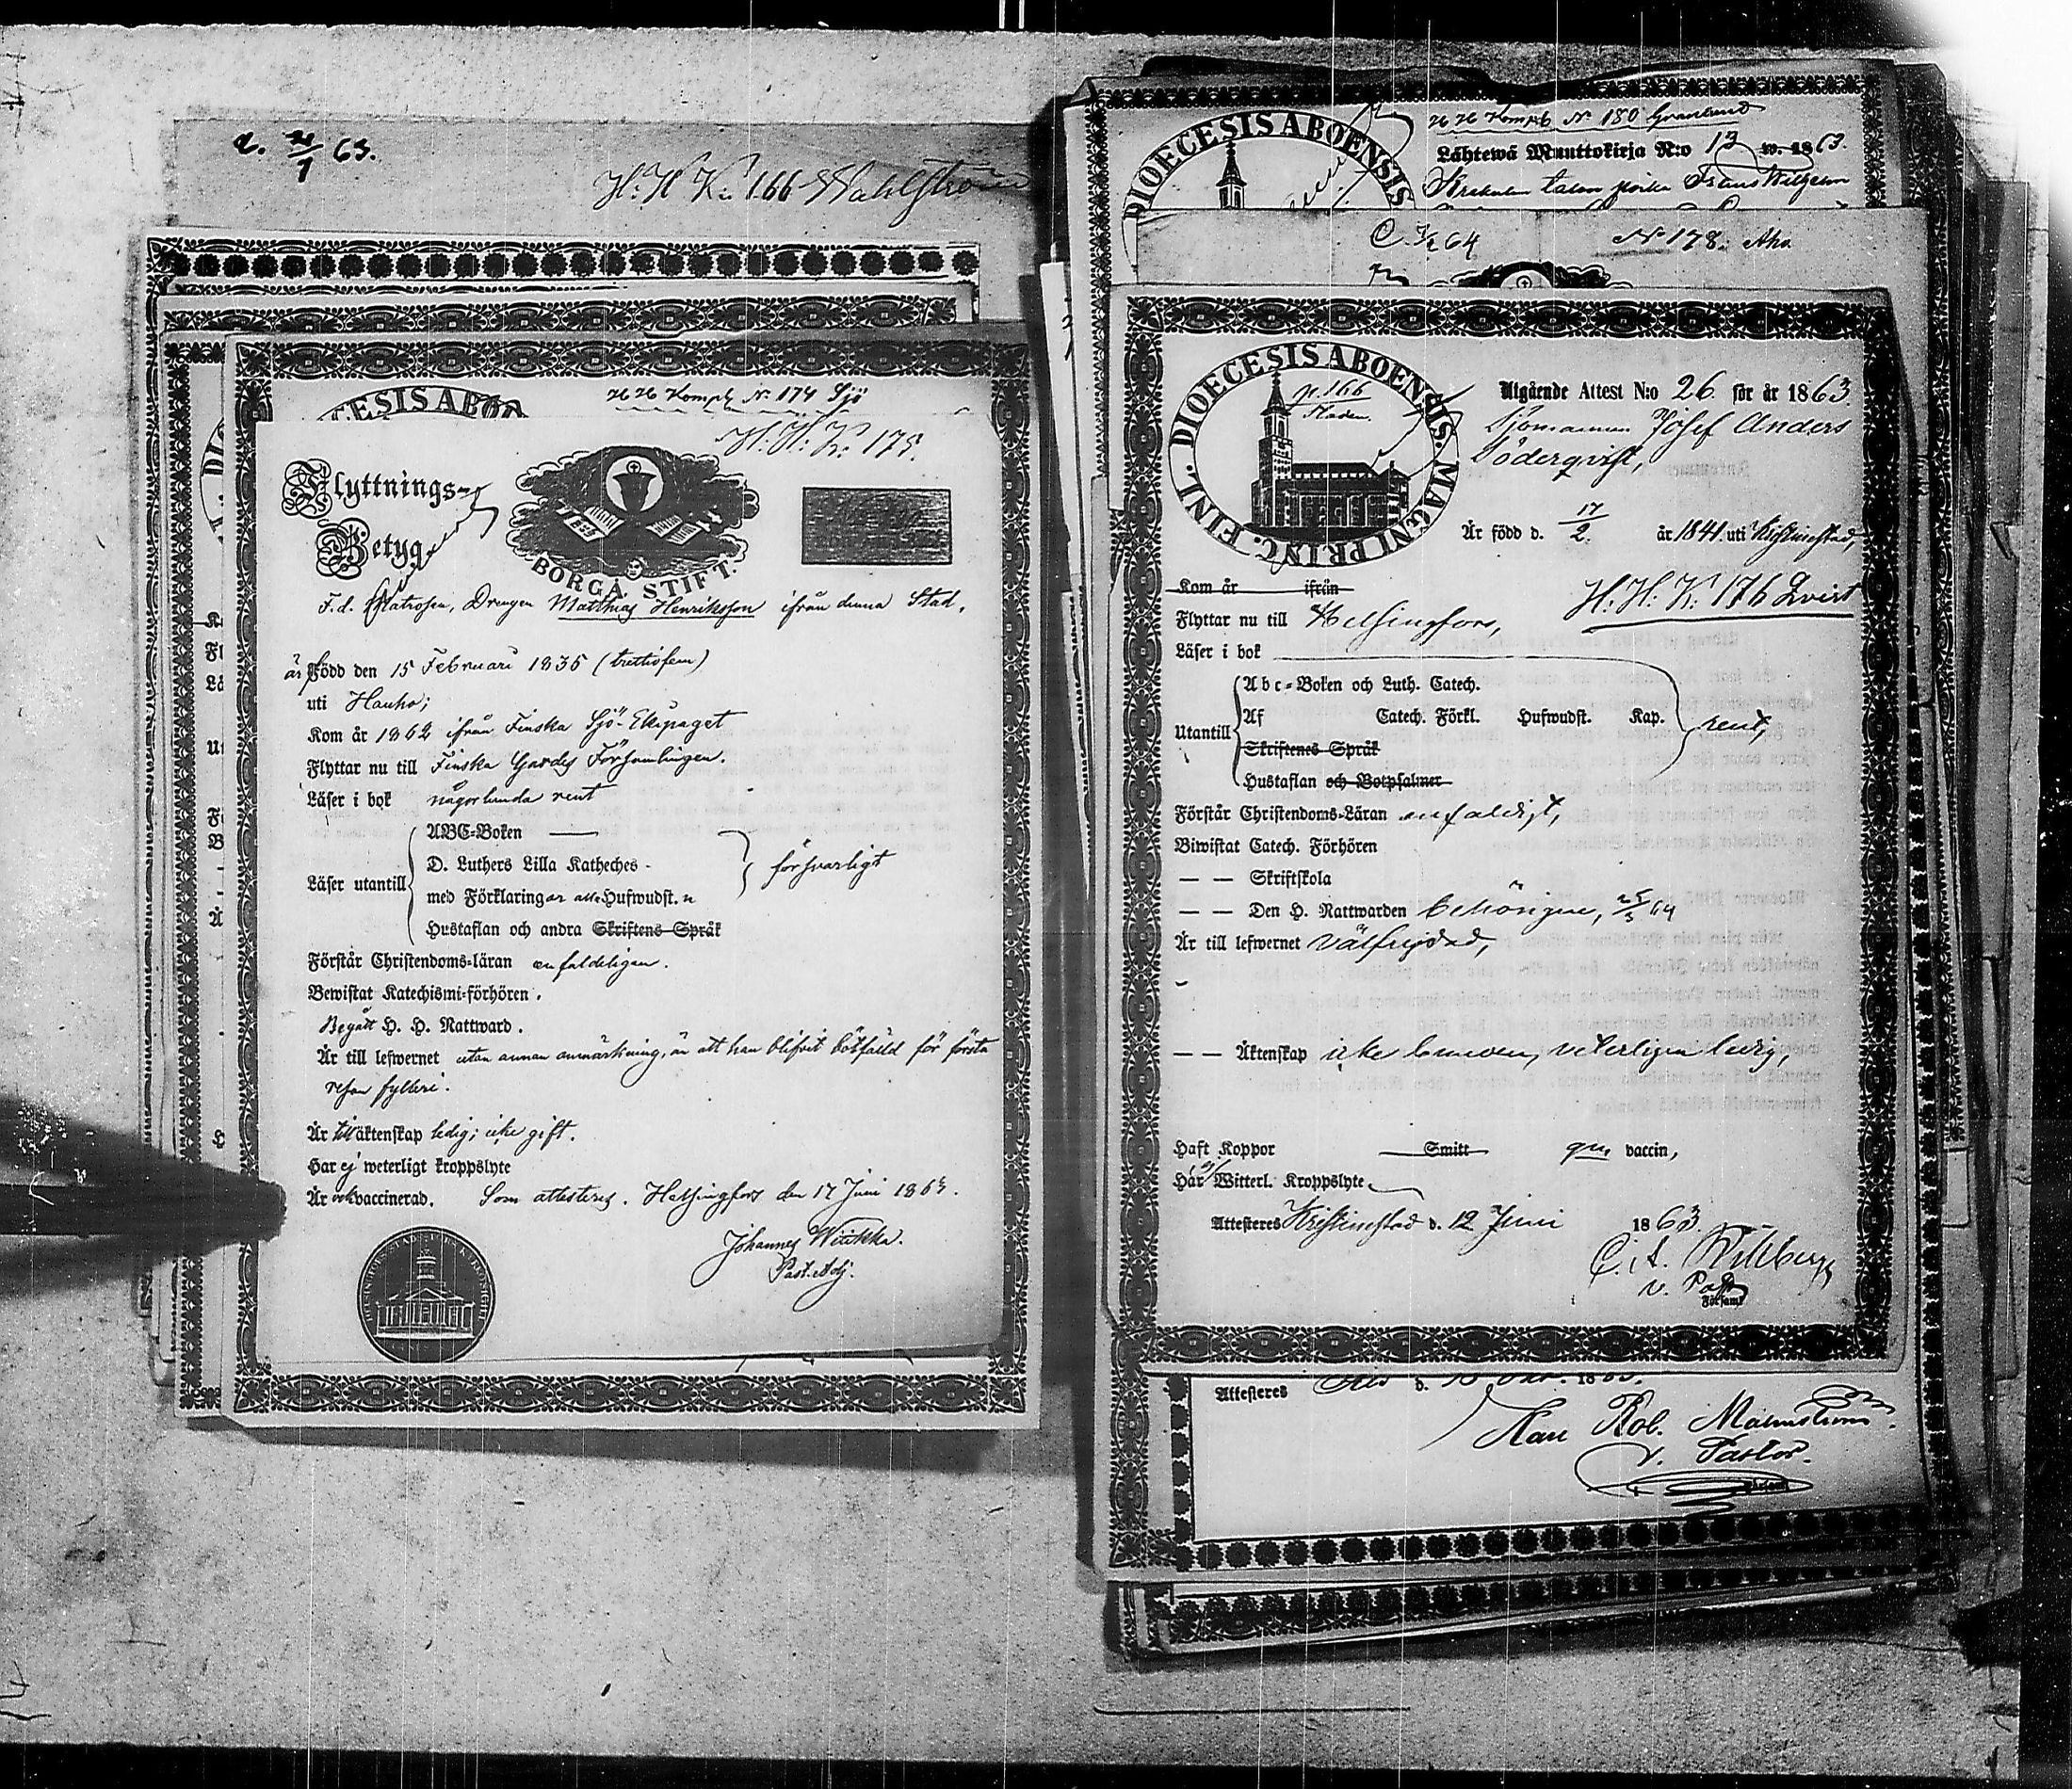 2/1 63.
H. H. K. 166 Wahlström
CESIS ABO
H H Komp. No 174 Sjö
H: H: K: 175.
Flyttnings-
Betyg
BORGÅ STIFT.
F.d. Matrosen, Drengen Matthias Henriksson ifrån denna Stad,
är Född den 15 Februari 1835 (trettiofem)
uti Hauho;
Kom år 1862 ifrån Finska Sjö-Ekipaget
Flyttar nu till Finska Gardes Församlingen.
Läser i bok någorlunda rent
Läser utantill
ABC-Boken —
D. Luthers Lilla Katheches-
med Förklaringar Hufwudst.
Hustaflan och andra Skriftens Språk
försvarligt
Förstår Christendoms-läran enfaldeligen.
Bewistat Katechismi-förhören.
Begått H. H. Nattward.
Är till lefwernet utan annan anmärkning, än att han blifvit bötfälld för första
resan fylleri.
Är till äktenskap ledig; icke gift.
Har ej weterligt kroppslyte
Är ock vaccinerad. Som attesteras. Helsingfors den 17 Juni 1863.
Johannes Wiukka.
Past. Adj.
DIOECESIS ABOENSIS
H H Kompb No 180 Granlund
Lähtewä Muuttokirja N:o 13 w. 1863.
talon Frans Wilhelm
C. 64
No 178. Aho
DIOECESIS ABOENSIS. MAGNI PRINC. FINL.
p. 166
Staden.
Utgående Attest N:o 26 för år 1863.
Sjömannen Josef Anders
Söderqvist,
Är född d. 17/2. år 1841 uti Kristinestad,
Kom år ifrån
H: H: K: 176 Qvist
Flyttar nu till Helsingfors,
Läser i bok
Utantill
Abc-Boken och Luth. Catech.
Af Catech. Förkl. Hufwudst. Kap.
Skriftenes Språk
Hustaflan och Botpsalmer
rent,
Förstår Christendoms-Läran enfaldigt,
Biwistat Catech. Förhören
— — Skriftskola
— — Den H. Nattwarden behörigen, 25/3 64
Är till lefwernet välfrejdad,
— — Äktenskap icke bunden, veterligen ledig,
Haft Koppor Smitt gm vaccin,
Har ej Witterl. Kroppslyte
Attesteres Kristinestad d. 12 Juni 1863.
C. A. Wihlberg
v. Past
Församl
Attesteres
Karl Rob. Malmström.
v. Pastor.